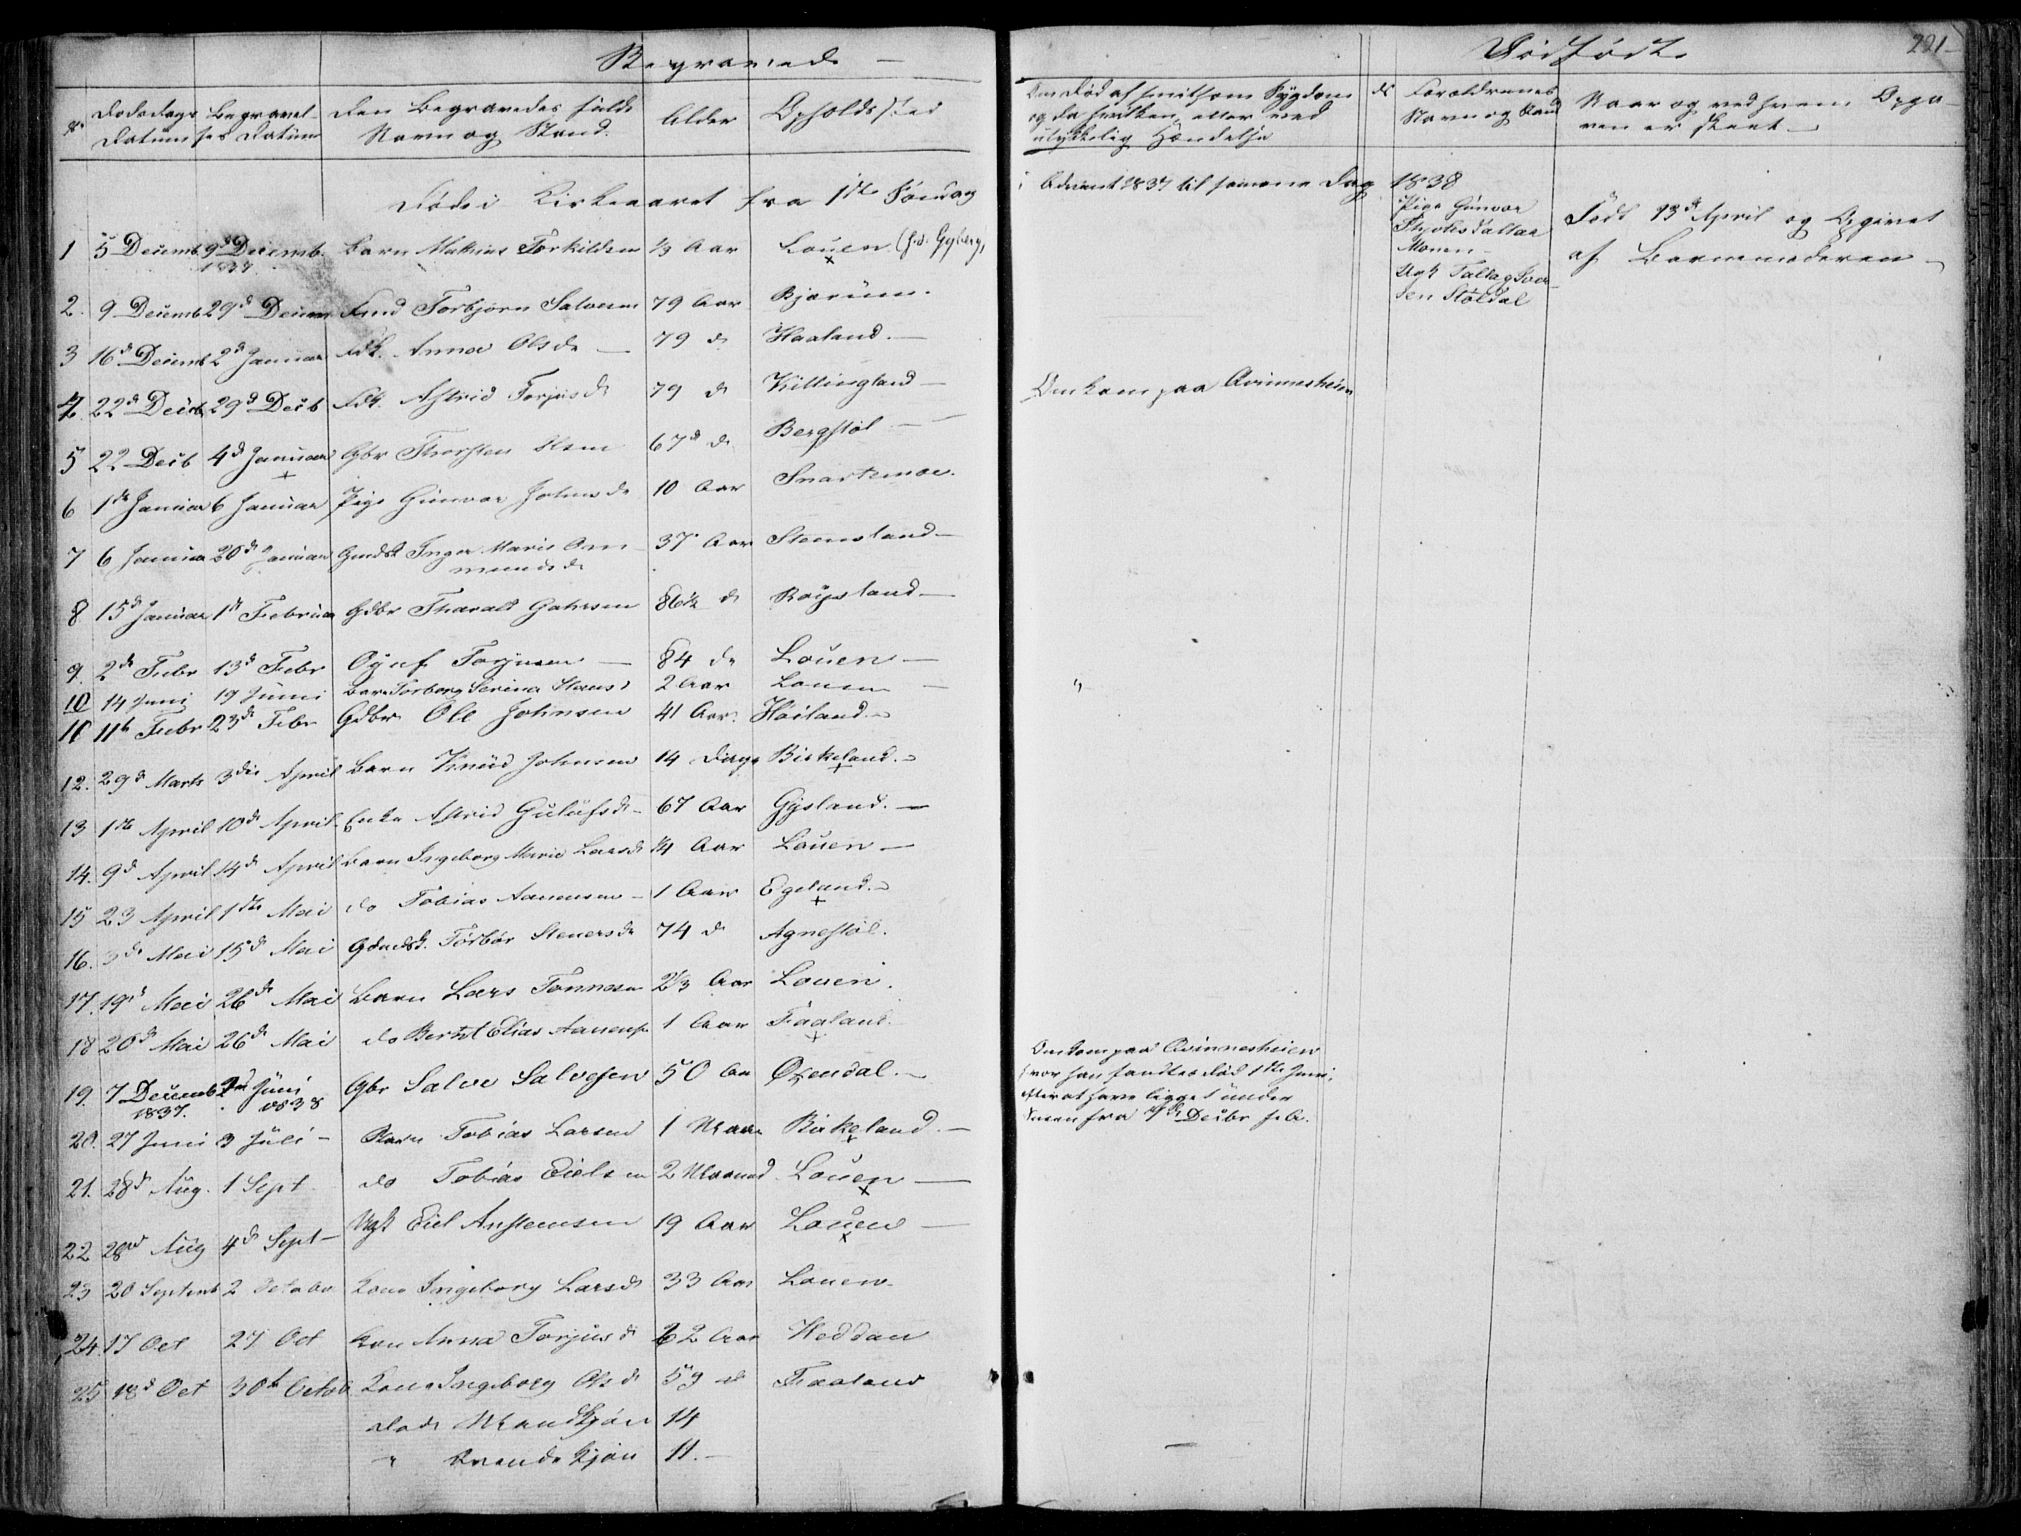 Begravede — Dödfödte 221
No Dødsdags Datum Begravelses Datum Den Begravedes fulde Navn og Stand. Alder Opholdssted
Om Død af smitsom Sygdom og da hvilken, eller ved ulykkelig Hændelse No Forældrenes Navn og Stand Naar og ved hvem Opgaven er skeet
Døde i Kirkeaaret fra 1ste Søndag i Advent 1837 til samme Dag 1838
1 5 Decemb 9de Decemb. 1837 Barn Mathias Torkildsen 1/3 Aar Louen
Pige Gunvor
Monen
Født 13de April og Opgivet af Barnemoderen
2. 9 Decemb 29de Decem Torbjørn Salvesen 79 Aar Bjærum.
3 16de Decemb 2de Januar Fdk. Anna Olsdr 79 dr Haaland.
4. 22de Decb 29de Decb Fdk. Astrid Torjusdr 79 dr Killingland
Omkom paa Qvinnesheien
5 22 Decb 4de Januar Gbr Thorsten Olsen 67 dr Bergstøl
6 1ste Januar 6 Januar Pige Gunvor Johnsdr 10 Aar Snartemoe.
7 6 Januar 20de Januar Gmdsk Inger Marie Om
mundsdr 37 Aar Stemsland
8 15de Januar 1ste Februar Gdbr Tharald 86 1/2 dr Røysland
9. 2de Febr 13de Febr Torjusen 84 dr Louen
10 14 Juni 19 Juni Barn Torborg Serina Hansd 2 Aar Louen
11 11te Febr 23de Febr Gdbr. Ole Johnsen 41 Aar. Høiland
12. 29de Marts 3die April Barn Knud Johnsen 14 Dage Birkeland.
13 1ste April 10de April Enke Astrid Gulufsdr 67 Aar Gysland.
14. 9de April 14de April Barn Ingeborg Marie Larsdr 1/4 Aar Louen
15 23 April 1ste Mai do Tobias Aanensen 1 Aar Egeland.
16. 3de Mai 15de Mai Gdmdsk. Torbør Stenersdr 74 dr Agnestøl.
17. 19de Mai 26de Mai Barn Lars Tønnesen 2 1/3 Aar Louen.
18 20de Mai 26de Mai do Berthel Elias Aanens. 1 Aar Faaland.
19. 7 Decemb 1837. 2den Juni 1838 Gbr Salve Salvesen 50 Aar Øxendal.
Omkom paa Qvinnesheien
hvor han fandtes død 1ste Juni,
efter at have ligget under
Sneen fra 7de Decbr
20. 27 Juni 3 Juli Barn Tobias Larsen 1 Maan Birkeland.
21. 28de Aug. 1 Sept do Tobias Eielsen 2 Maaned Louen
22 28de Aug 4de Sept Ugk Eiel Anstensen 19 Aar Louen
23 20 Septemb 2 October Kone Ingeborg Larsdr 33 Aar Louen
24. 17 Oct 27 Oct Kone Anna Torjusdr 62 Aar Heddan
25 18de Oct 30te Octob Kone Ingeborg Olsdr 59 dr Faaland
Døde Mandkjøn 14
" Qvindekjøn 11.